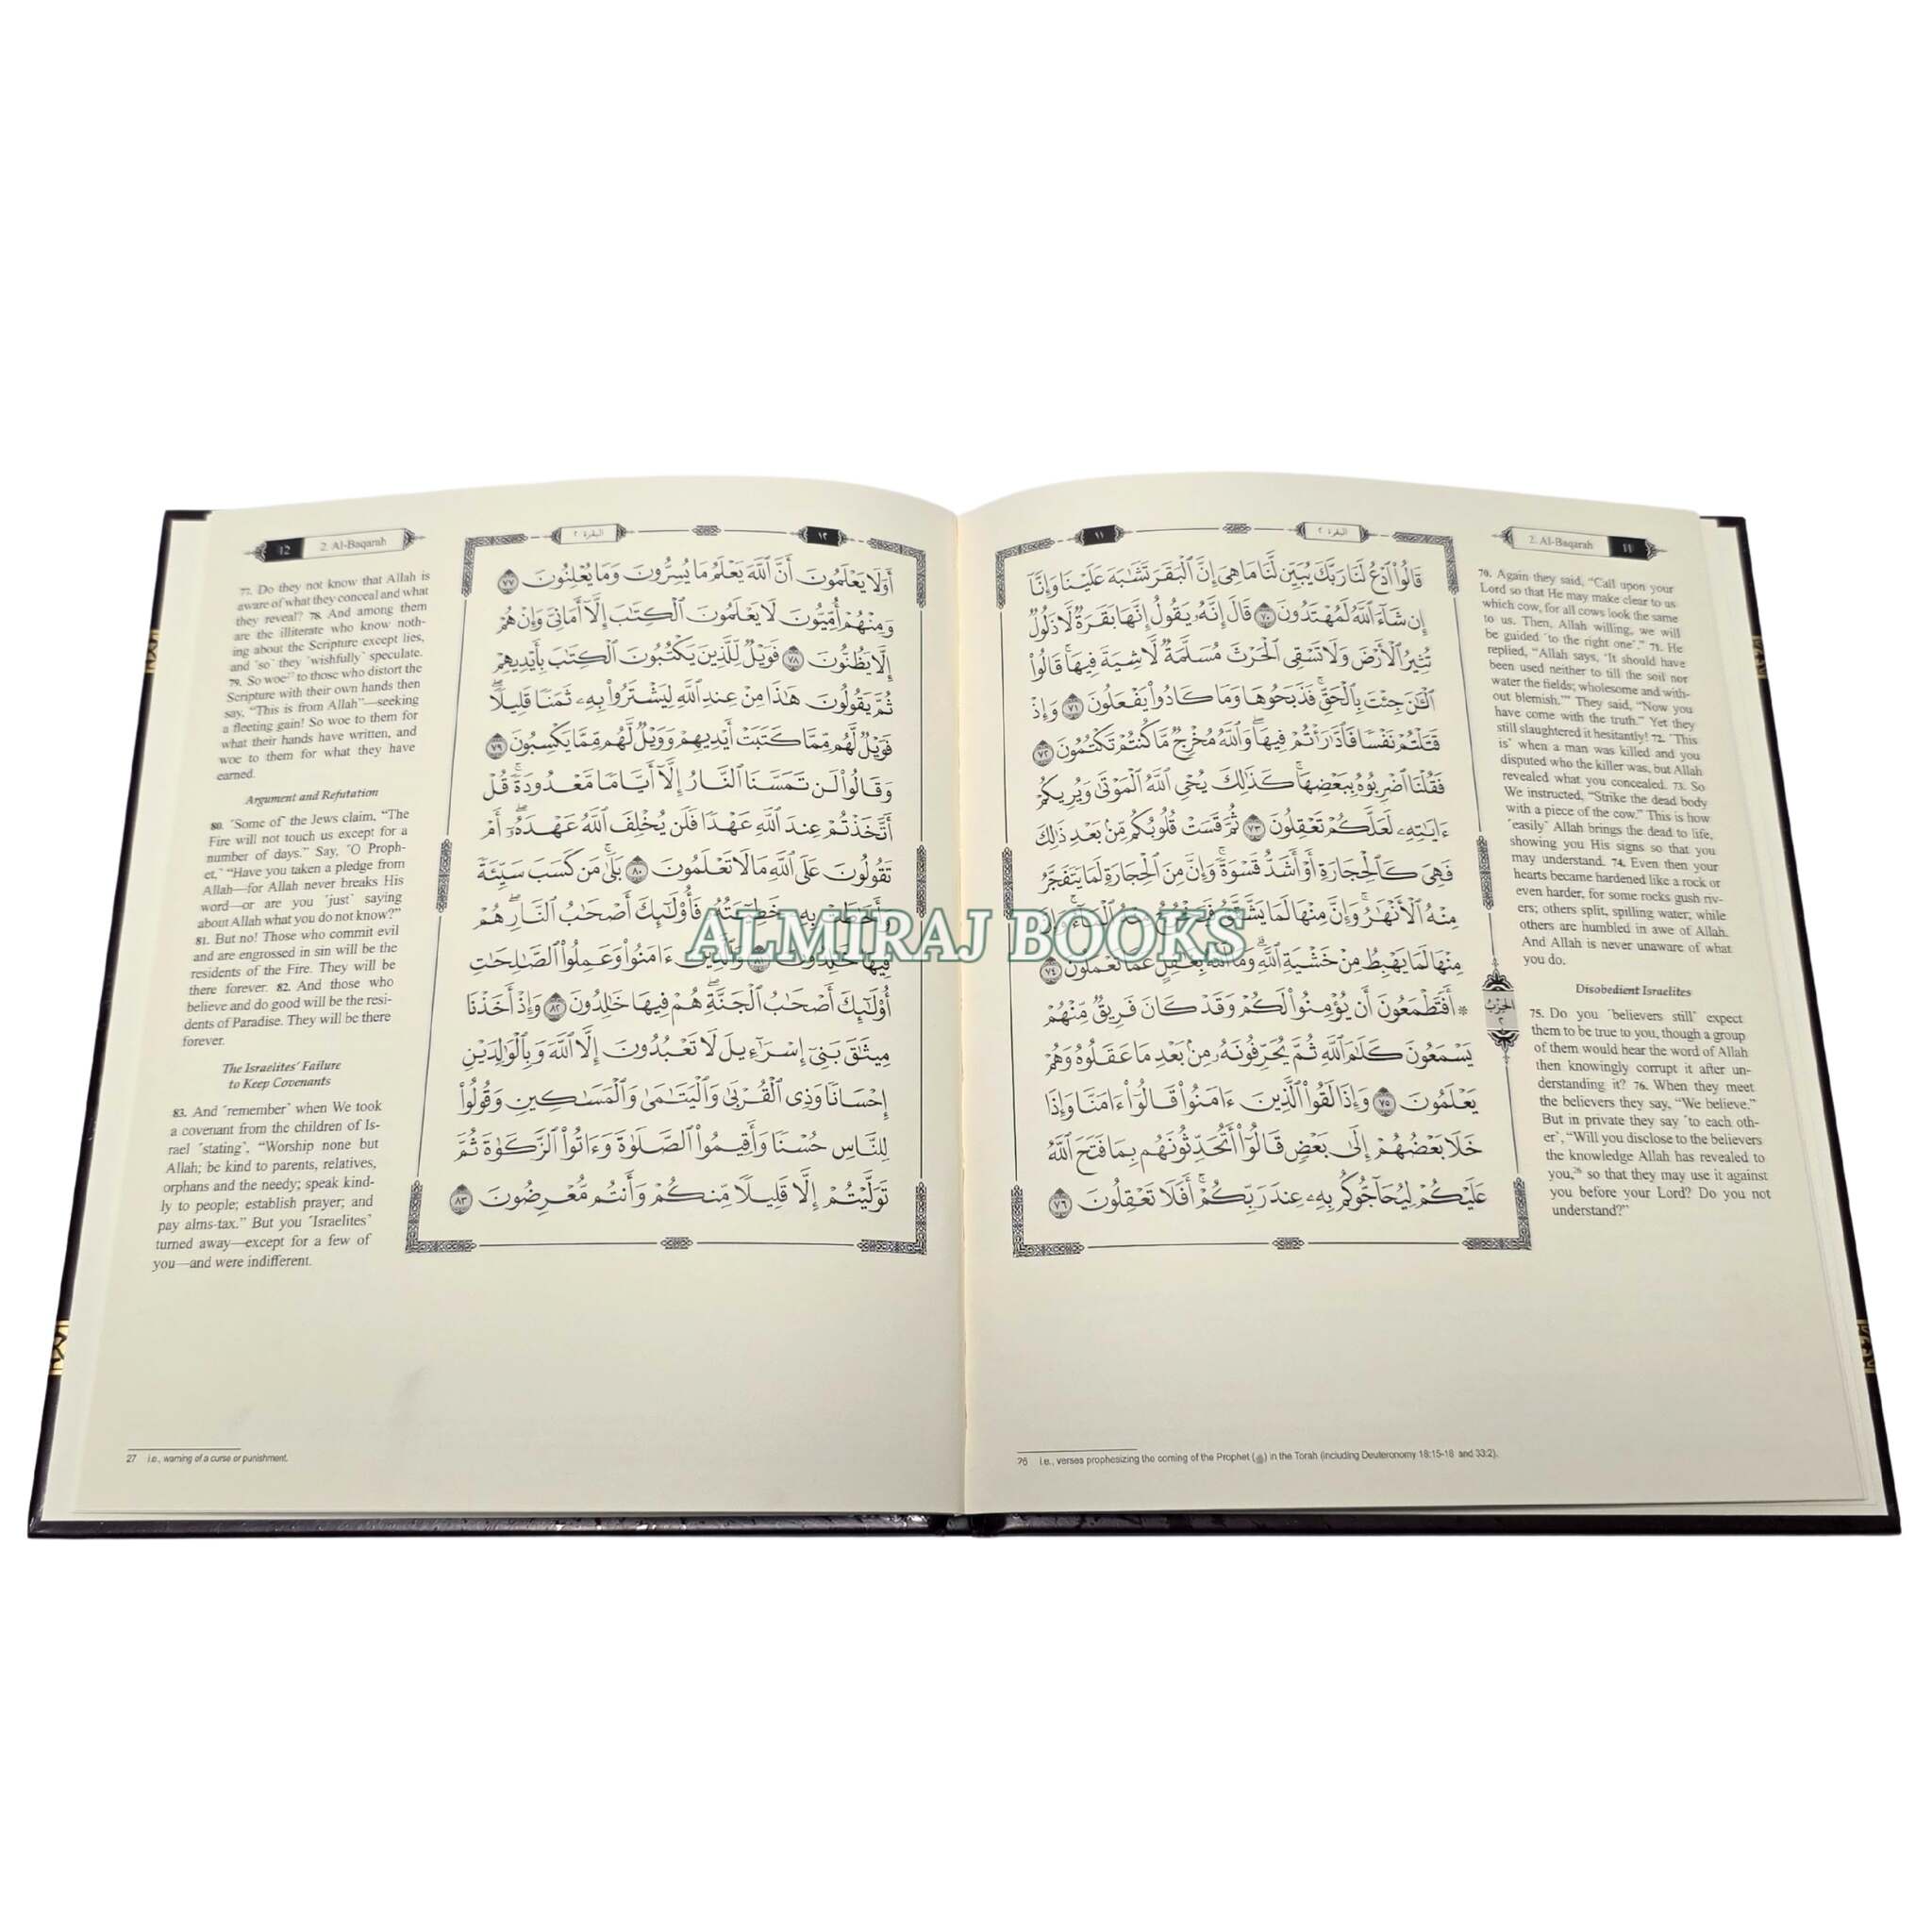 ١١
البقرة ٢
2. Al-Baqarah
11
قَالُوا۟ ٱدْعُ لَنَا رَبَّكَ يُبَيِّن لَّنَا مَا هِىَ إِنَّ ٱلْبَقَرَ تَشَٰبَهَ عَلَيْنَا وَإِنَّآ
إِن شَآءَ ٱللَّهُ لَمُهْتَدُونَ ٧٠ قَالَ إِنَّهُۥ يَقُولُ إِنَّهَا بَقَرَةٌ لَّا ذَلُولٌ
تُثِيرُ ٱلْأَرْضَ وَلَا تَسْقِى ٱلْحَرْثَ مُسَلَّمَةٌ لَّا شِيَةَ فِيهَا ۚ قَالُوا۟
ٱلْـَٰٔنَ جِئْتَ بِٱلْحَقِّ ۚ فَذَبَحُوهَا وَمَا كَادُوا۟ يَفْعَلُونَ ٧١ وَإِذْ
قَتَلْتُمْ نَفْسًا فَٱدَّٰرَْٰٔتُمْ فِيهَا ۖ وَٱللَّهُ مُخْرِجٌ مَّا كُنتُمْ تَكْتُمُونَ ٧٢
فَقُلْنَا ٱضْرِبُوهُ بِبَعْضِهَا ۚ كَذَٰلِكَ يُحْىِ ٱللَّهُ ٱلْمَوْتَىٰ وَيُرِيكُمْ
ءَايَٰتِهِۦ لَعَلَّكُمْ تَعْقِلُونَ ٧٣ ثُمَّ قَسَتْ قُلُوبُكُم مِّنۢ بَعْدِ ذَٰلِكَ
فَهِىَ كَٱلْحِجَارَةِ أَوْ أَشَدُّ قَسْوَةً ۚ وَإِنَّ مِنَ ٱلْحِجَارَةِ لَمَا يَتَفَجَّرُ
مِنْهُ ٱلْأَنْهَٰرُ ۚ وَإِنَّ مِنْهَا لَمَا يَشَّقَّقُ فَيَخْرُجُ مِنْهُ ٱلْمَآءُ ۚ وَإِنَّ
مِنْهَا لَمَا يَهْبِطُ مِنْ خَشْيَةِ ٱللَّهِ ۗ وَمَا ٱللَّهُ بِغَٰفِلٍ عَمَّا تَعْمَلُونَ ٧٤
۞ أَفَتَطْمَعُونَ أَن يُؤْمِنُوا۟ لَكُمْ وَقَدْ كَانَ فَرِيقٌ مِّنْهُمْ
يَسْمَعُونَ كَلَٰمَ ٱللَّهِ ثُمَّ يُحَرِّفُونَهُۥ مِنۢ بَعْدِ مَا عَقَلُوهُ وَهُمْ
يَعْلَمُونَ ٧٥ وَإِذَا لَقُوا۟ ٱلَّذِينَ ءَامَنُوا۟ قَالُوٓا۟ ءَامَنَّا وَإِذَا
خَلَا بَعْضُهُمْ إِلَىٰ بَعْضٍ قَالُوٓا۟ أَتُحَدِّثُونَهُم بِمَا فَتَحَ ٱللَّهُ
عَلَيْكُمْ لِيُحَآجُّوكُم بِهِۦ عِندَ رَبِّكُمْ ۚ أَفَلَا تَعْقِلُونَ ٧٦
الحزب
٢
70. Again they said, “Call upon your
Lord so that He may make clear to us
which cow, for all cows look the same
to us. Then, Allah willing, we will
be guided ˹to the right one˺.” 71. He
replied, “Allah says, ‘It should have
been used neither to till the soil nor
water the fields; wholesome and with-
out blemish.’” They said, “Now you
have come with the truth.” Yet they
still slaughtered it hesitantly! 72. ˹This
is˺ when a man was killed and you
disputed who the killer was, but Allah
revealed what you concealed. 73. So
We instructed, “Strike the dead body
with a piece of the cow.” This is how
˹easily˺ Allah brings the dead to life,
showing you His signs so that you
may understand. 74. Even then your
hearts became hardened like a rock or
even harder, for some rocks gush riv-
ers; others split, spilling water; while
others are humbled in awe of Allah.
And Allah is never unaware of what
you do.
Disobedient Israelites
75. Do you ˹believers still˺ expect
them to be true to you, though a group
of them would hear the word of Allah
then knowingly corrupt it after un-
derstanding it? 76. When they meet
the believers they say, “We believe.”
But in private they say ˹to each oth-
er˺, “Will you disclose to the believers
the knowledge Allah has revealed to
you,26 so that they may use it against
you before your Lord? Do you not
understand?”
26 i.e., verses prophesizing the coming of the Prophet (ﷺ) in the Torah (including Deuteronomy 18:15-18 and 33:2).
12
2. Al-Baqarah
البقرة ٢
١٢
أَوَلَا يَعْلَمُونَ أَنَّ ٱللَّهَ يَعْلَمُ مَا يُسِرُّونَ وَمَا يُعْلِنُونَ ٧٧
وَمِنْهُمْ أُمِّيُّونَ لَا يَعْلَمُونَ ٱلْكِتَٰبَ إِلَّآ أَمَانِىَّ وَإِنْ هُمْ
إِلَّا يَظُنُّونَ ٧٨ فَوَيْلٌ لِّلَّذِينَ يَكْتُبُونَ ٱلْكِتَٰبَ بِأَيْدِيهِمْ
ثُمَّ يَقُولُونَ هَٰذَا مِنْ عِندِ ٱللَّهِ لِيَشْتَرُوا۟ بِهِۦ ثَمَنًا قَلِيلًا ۖ
فَوَيْلٌ لَّهُم مِّمَّا كَتَبَتْ أَيْدِيهِمْ وَوَيْلٌ لَّهُم مِّمَّا يَكْسِبُونَ ٧٩
وَقَالُوا۟ لَن تَمَسَّنَا ٱلنَّارُ إِلَّآ أَيَّامًا مَّعْدُودَةً ۚ قُلْ
أَتَّخَذْتُمْ عِندَ ٱللَّهِ عَهْدًا فَلَن يُخْلِفَ ٱللَّهُ عَهْدَهُۥٓ ۖ أَمْ
تَقُولُونَ عَلَى ٱللَّهِ مَا لَا تَعْلَمُونَ ٨٠ بَلَىٰ ۚ مَن كَسَبَ سَيِّئَةً
وَأَحَٰطَتْ بِهِۦ خَطِيٓـَٔتُهُۥ فَأُو۟لَٰٓئِكَ أَصْحَٰبُ ٱلنَّارِ ۖ هُمْ
فِيهَا خَٰلِدُونَ ٨١ وَٱلَّذِينَ ءَامَنُوا۟ وَعَمِلُوا۟ ٱلصَّٰلِحَٰتِ
أُو۟لَٰٓئِكَ أَصْحَٰبُ ٱلْجَنَّةِ ۖ هُمْ فِيهَا خَٰلِدُونَ ٨٢ وَإِذْ أَخَذْنَا
مِيثَٰقَ بَنِىٓ إِسْرَٰٓءِيلَ لَا تَعْبُدُونَ إِلَّا ٱللَّهَ وَبِٱلْوَٰلِدَيْنِ
إِحْسَانًا وَذِى ٱلْقُرْبَىٰ وَٱلْيَتَٰمَىٰ وَٱلْمَسَٰكِينِ وَقُولُوا۟
لِلنَّاسِ حُسْنًا وَأَقِيمُوا۟ ٱلصَّلَوٰةَ وَءَاتُوا۟ ٱلزَّكَوٰةَ ثُمَّ
تَوَلَّيْتُمْ إِلَّا قَلِيلًا مِّنكُمْ وَأَنتُم مُّعْرِضُونَ ٨٣
77. Do they not know that Allah is
aware of what they conceal and what
they reveal? 78. And among them
are the illiterate who know noth-
ing about the Scripture except lies,
and ˹so˺ they ˹wishfully˺ speculate.
79. So woe27 to those who distort the
Scripture with their own hands then
say, “This is from Allah”—seeking
a fleeting gain! So woe to them for
what their hands have written, and
woe to them for what they have
earned.
Argument and Refutation
80. ˹Some of˺ the Jews claim, “The
Fire will not touch us except for a
number of days.” Say, ˹O Proph-
et,˺ “Have you taken a pledge from
Allah—for Allah never breaks His
word—or are you ˹just˺ saying
about Allah what you do not know?”
81. But no! Those who commit evil
and are engrossed in sin will be the
residents of the Fire. They will be
there forever. 82. And those who
believe and do good will be the resi-
dents of Paradise. They will be there
forever.
The Israelites’ Failure
to Keep Covenants
83. And ˹remember˺ when We took
a covenant from the children of Is-
rael ˹stating˺, “Worship none but
Allah; be kind to parents, relatives,
orphans and the needy; speak kind-
ly to people; establish prayer; and
pay alms-tax.” But you ˹Israelites˺
turned away—except for a few of
you—and were indifferent.
27 i.e., warning of a curse or punishment.
ALMIRAJ BOOKS